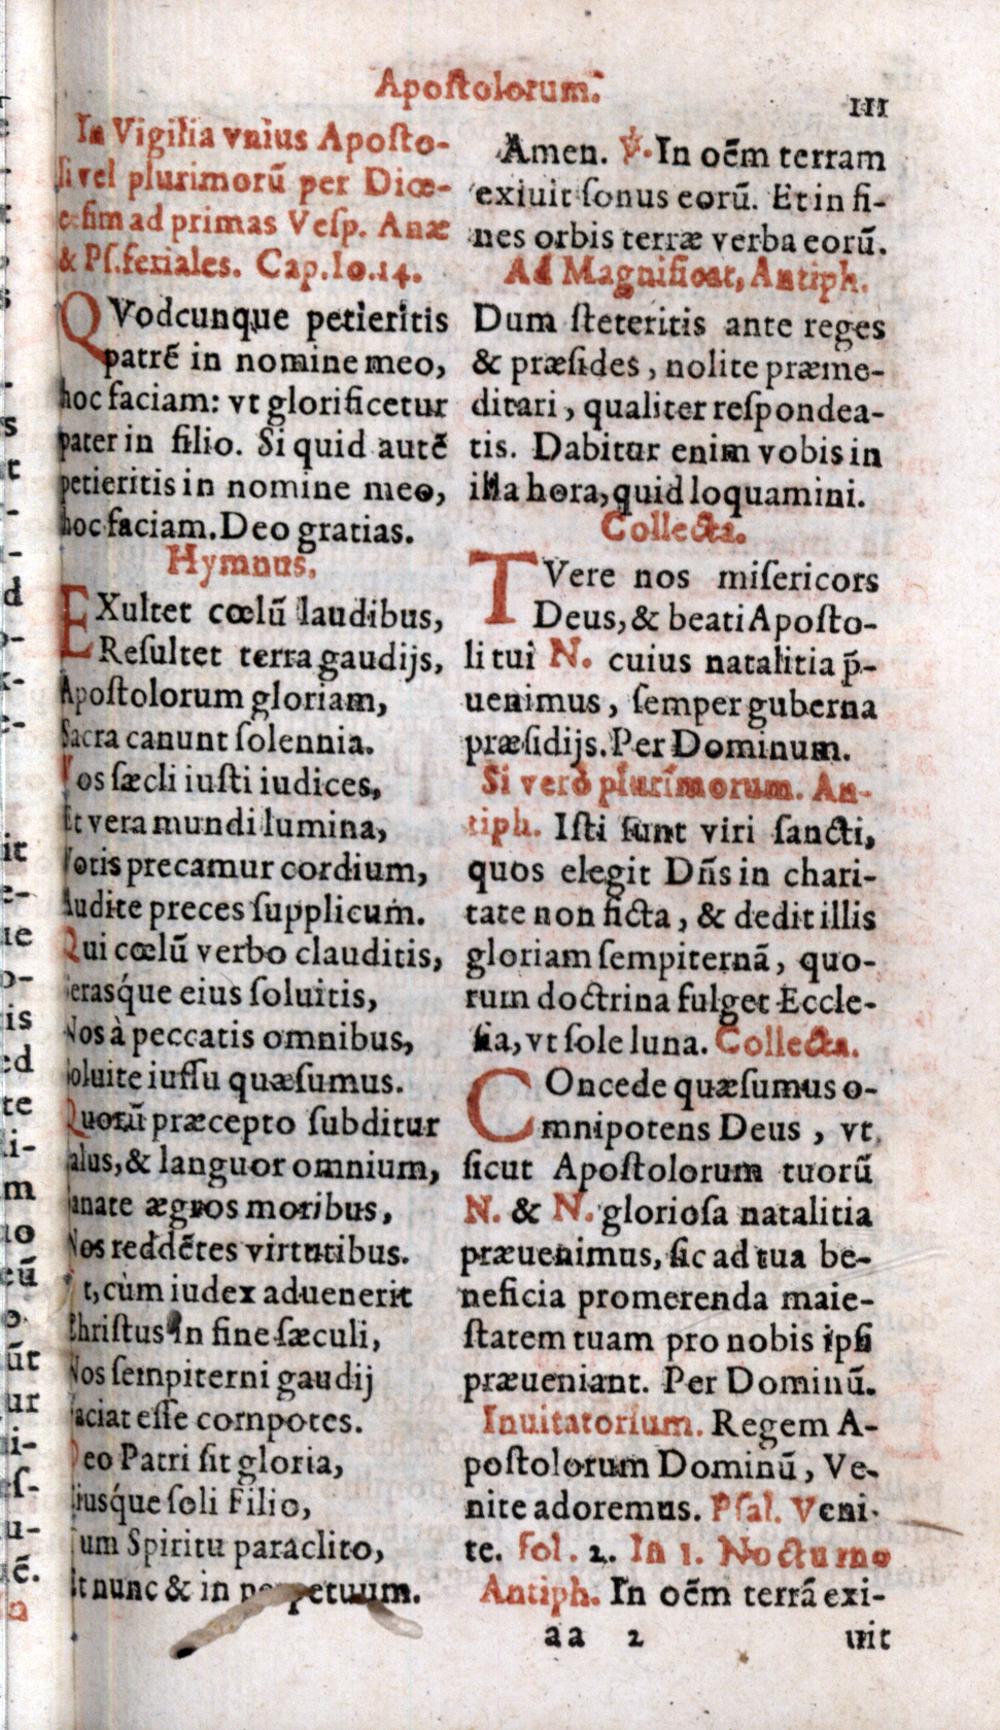 Apostolorum.
III
In Vigilia vnius Aposto-
li vel plurimorũ per Diœ-
cesim ad primas Vesp. Anæ
& Ps. feriales. Cap. Io. 14.
QVodcunque petieritis
patrẽ in nomine meo,
hoc faciam: vt glorificetur
pater in filio. Si quid autẽ
petieritis in nomine meo,
hoc faciam. Deo gratias.
Hymnus.
EXultet cœlũ laudibus,
Resultet terra gaudijs,
Apostolorum gloriam,
Sacra canunt solennia.
Vos sæcli iusti iudices,
Et vera mundi lumina,
Votis precamur cordium,
Audite preces supplicum.
Qui cœlũ verbo clauditis,
Serasq́ue eius soluitis,
Nos à peccatis omnibus,
Soluite iussu quæsumus.
Quorũ præcepto subditur
Salus, & languor omnium,
Sanate ægros moribus,
Nos reddẽtes virtutibus.
Vt, cùm iudex aduenerit
Christus in fine sæculi,
Nos sempiterni gaudij
Faciat esse compotes.
Deo Patri sit gloria,
Eiusq́ue soli Filio,
Cum Spiritu paraclito,
Et nunc & in perpetuum.
Amen. ℣. In oẽm terram
exiuit sonus eorũ. Et in fi-
nes orbis terræ verba eorũ.
Ad Magnificat, Antiph.
Dum steteritis ante reges
& præsides, nolite præme-
ditari, qualiter respondea-
tis. Dabitur enim vobis in
illa hora, quid loquamini.
Collecta.
TVere nos misericors
Deus, & beati Aposto-
li tui N. cuius natalitia p̃-
uenimus, semper guberna
præsidijs. Per Dominum.
Si verò plurimorum. An-
tiph. Isti sunt viri sancti,
quos elegit Dñs in chari-
tate non ficta, & dedit illis
gloriam sempiternã, quo-
rum doctrina fulget Eccle-
sia, vt sole luna. Collecta.
COncede quæsumus o-
mnipotens Deus, vt
sicut Apostolorum tuorũ
N. & N. gloriosa natalitia
præuenimus, sic ad tua be-
neficia promerenda maie-
statem tuam pro nobis ipsi
præueniant. Per Dominũ.
Inuitatorium. Regem A-
postolorum Dominũ, Ve-
nite adoremus. Psal. Veni-
te. fol. 2. In 1. Nocturno
Antiph. In oẽm terrã exi-
aa 2
uit